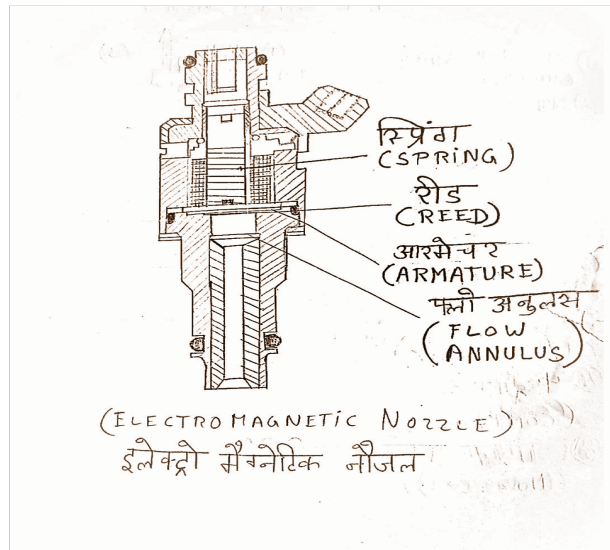 स्प्रिंग
(SPRING)
रीड
(REED)
आरमेचर
(ARMATURE)
फ्लो अनुलस
(FLOW
ANNULUS)
(ELECTROMAGNETIC NOZZLE)
इलेक्ट्रो मैग्नेटिक नौजल